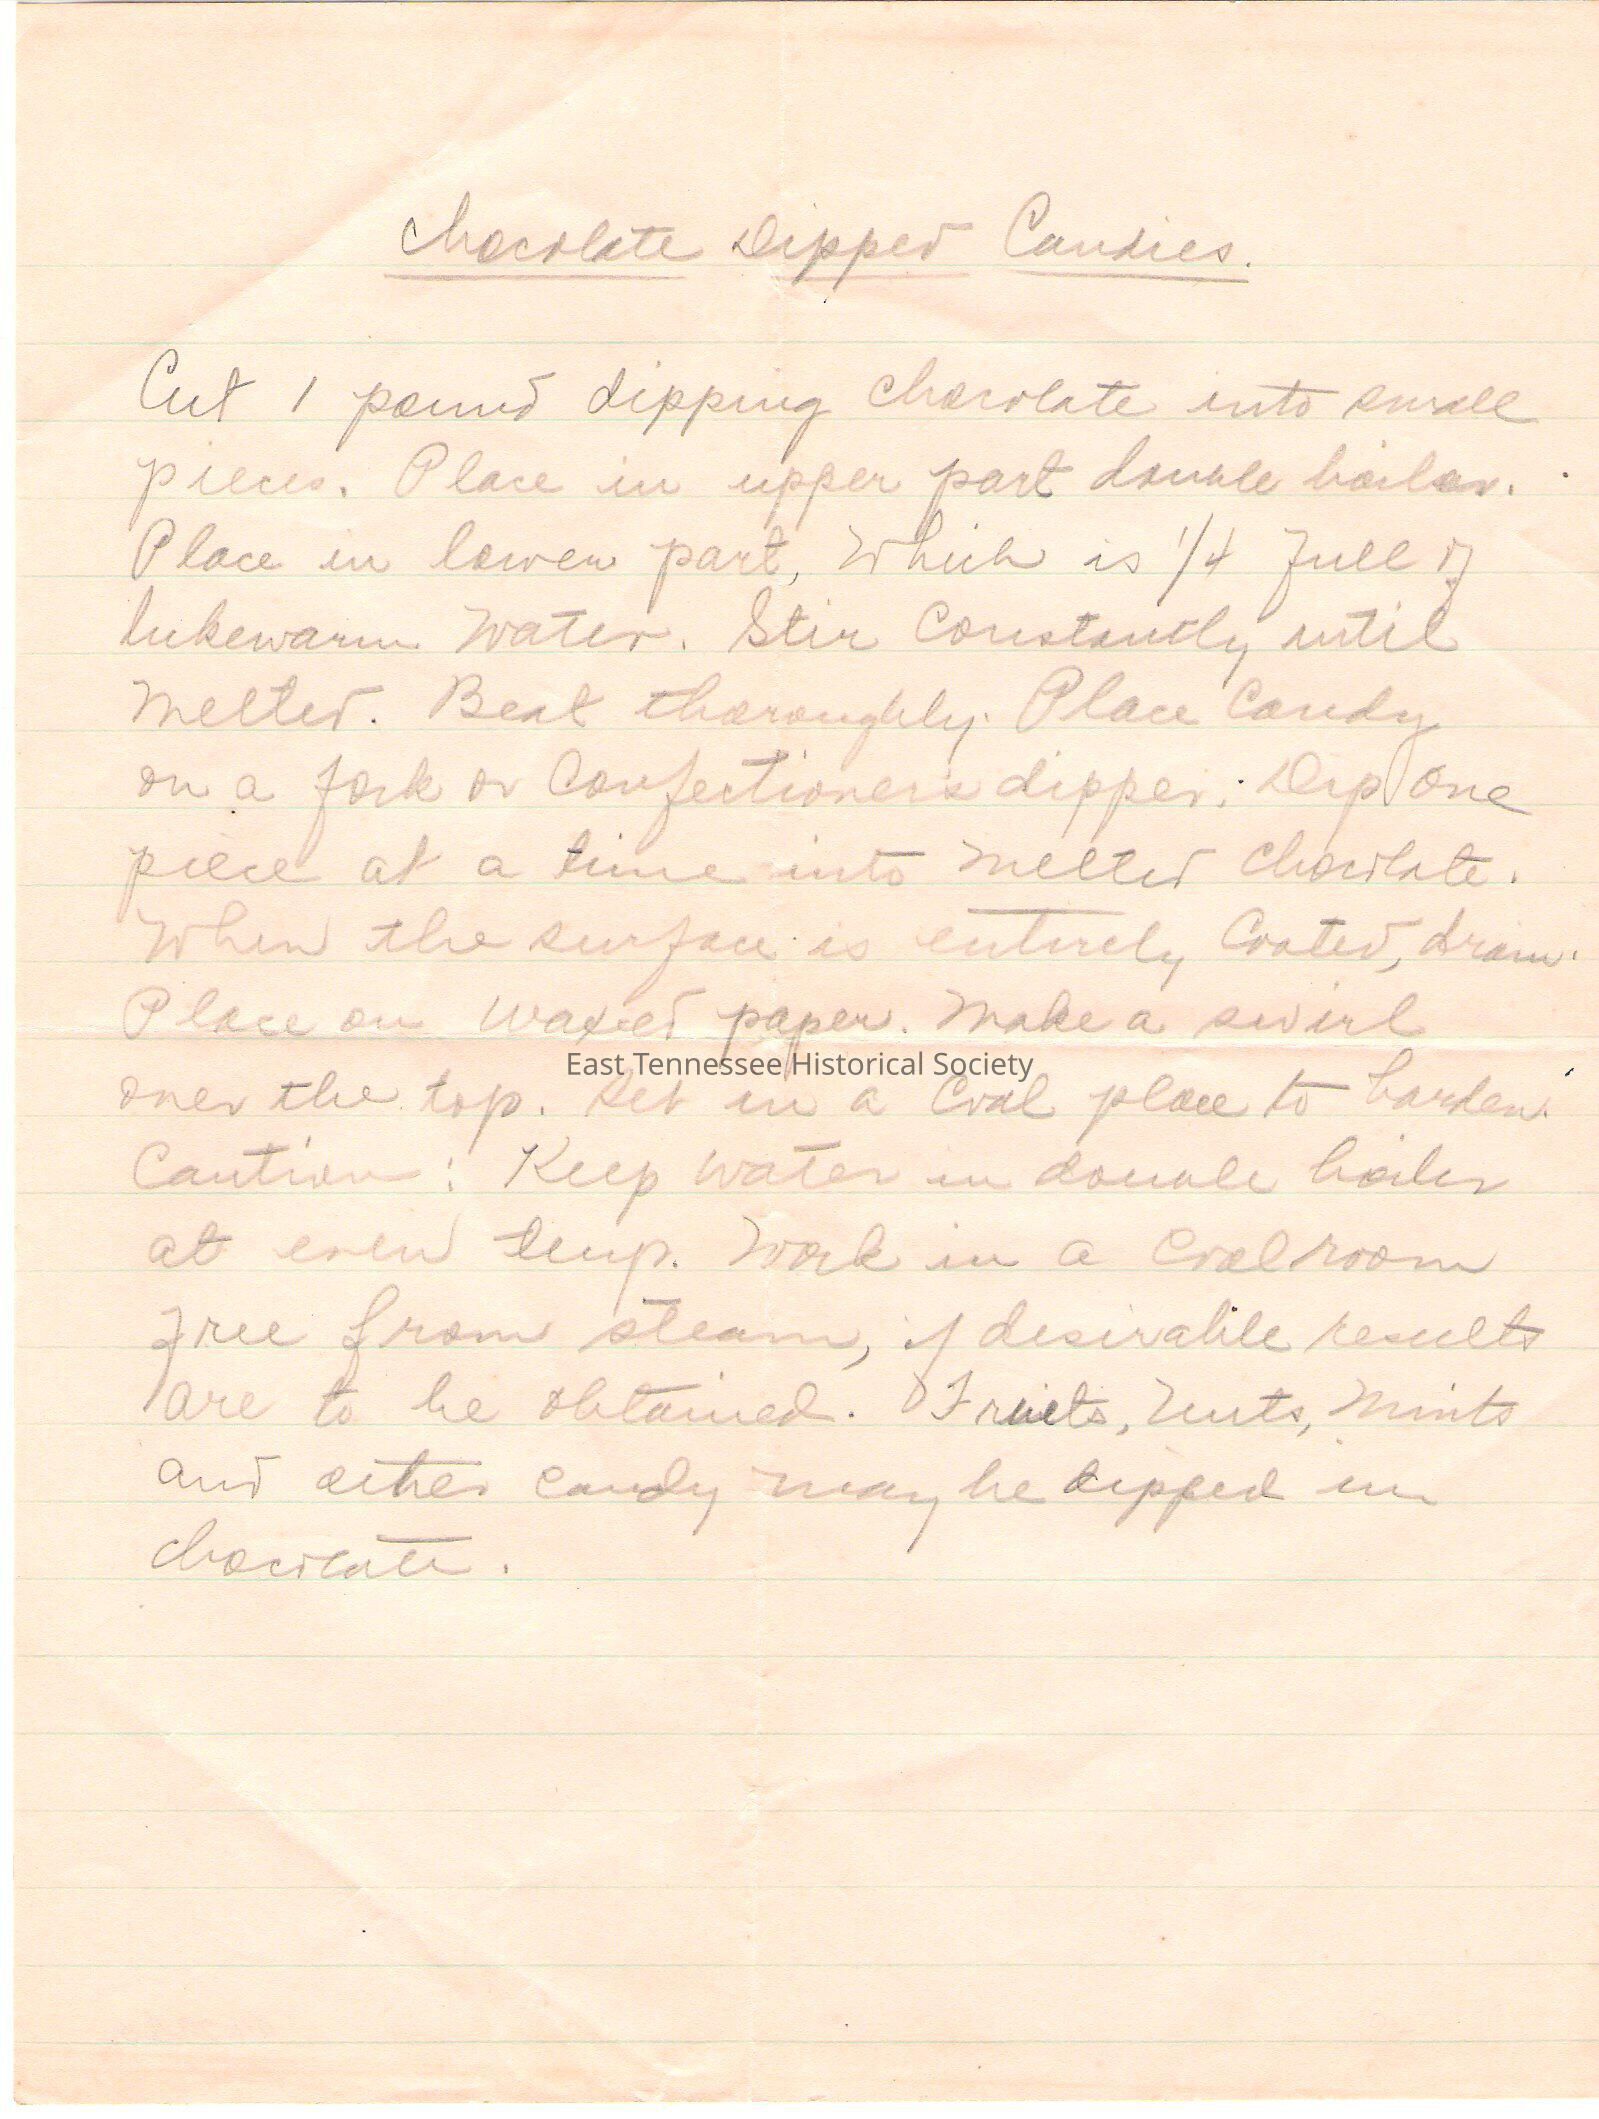 Chocolate Dipped Candies.
Cut 1 pound dipping chocolate into small
pieces. Place in upper part double boiler.
Place in lower part, which is 1/4 full of
lukewarm water. Stir constantly until
melted. Beat thoroughly. Place candy
on a fork or confectioner's dipper. Dip one
piece at a time into melted chocolate.
When the surface is entirely coated, drain.
Place on waxed paper. Make a swirl
East Tennessee Historical Society
over the top. Set in a cool place to harden.
Caution: Keep water in double boiler
at even temp. Work in a cool room
free from steam, if desirable results
are to be obtained. Fruits, nuts, mints
and other candy may be dipped in
chocolate.